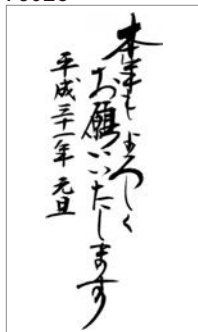 本年も よろしく
お願いいたします
平成三十一年 元旦